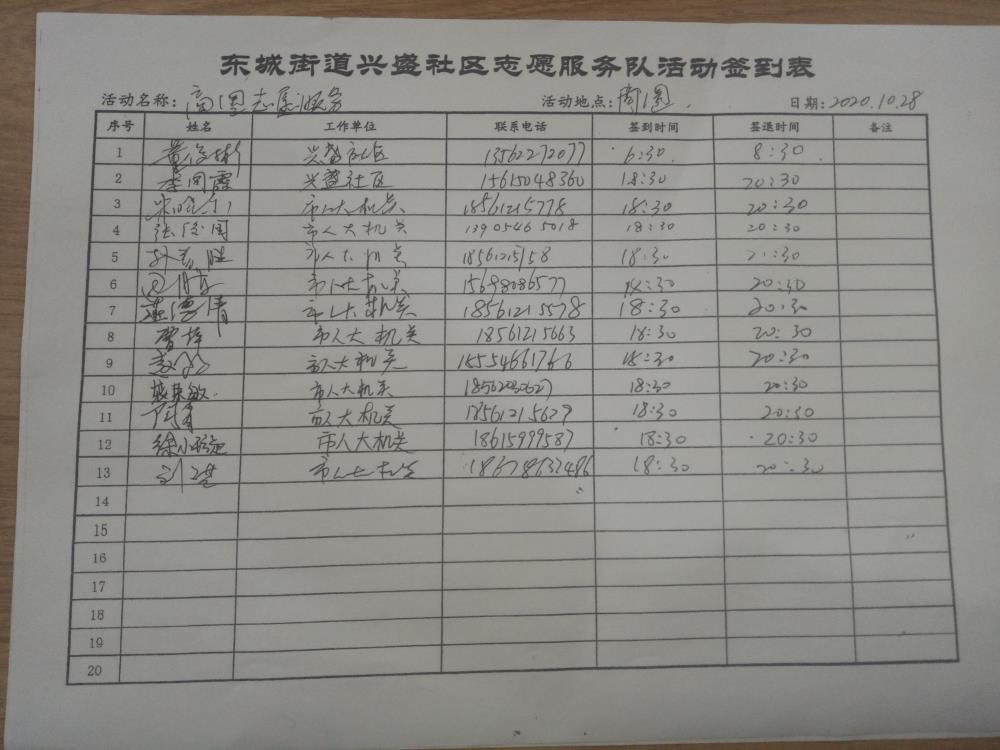 东城街道兴盛社区志愿服务队活动签到表
活动名称: 志愿服务 活动地点: 日期: 2020.10.28
序号 姓名 工作单位 联系电话 签到时间 签退时间 备注
1 兴盛社区 13562272077 6:30 8:30
2 李同霞 兴盛社区 15615048360 18:30 20:30
3 市人大机关 18561215778 18:30 20:30
4 市人大机关 13905465018 18:30 20:30
5 市人大机关 18:30
6 市人大机关 15698086577 20:30
7 市人大机关 18561215578 18:30 20:30
8 曹梓 市人大机关 18561215663 18:30 20:30
9 市人大机关 18554661766 18:30 20:30
10 市人大机关 18562030627 18:30 20:30
11 市人大机关 18561215629 18:30 20:30
12 徐小 市人大机关 18615999587 18:30 20:30
13 市人大机关 18678632486 18:30 20:30
14
15
16
17
18
19
20